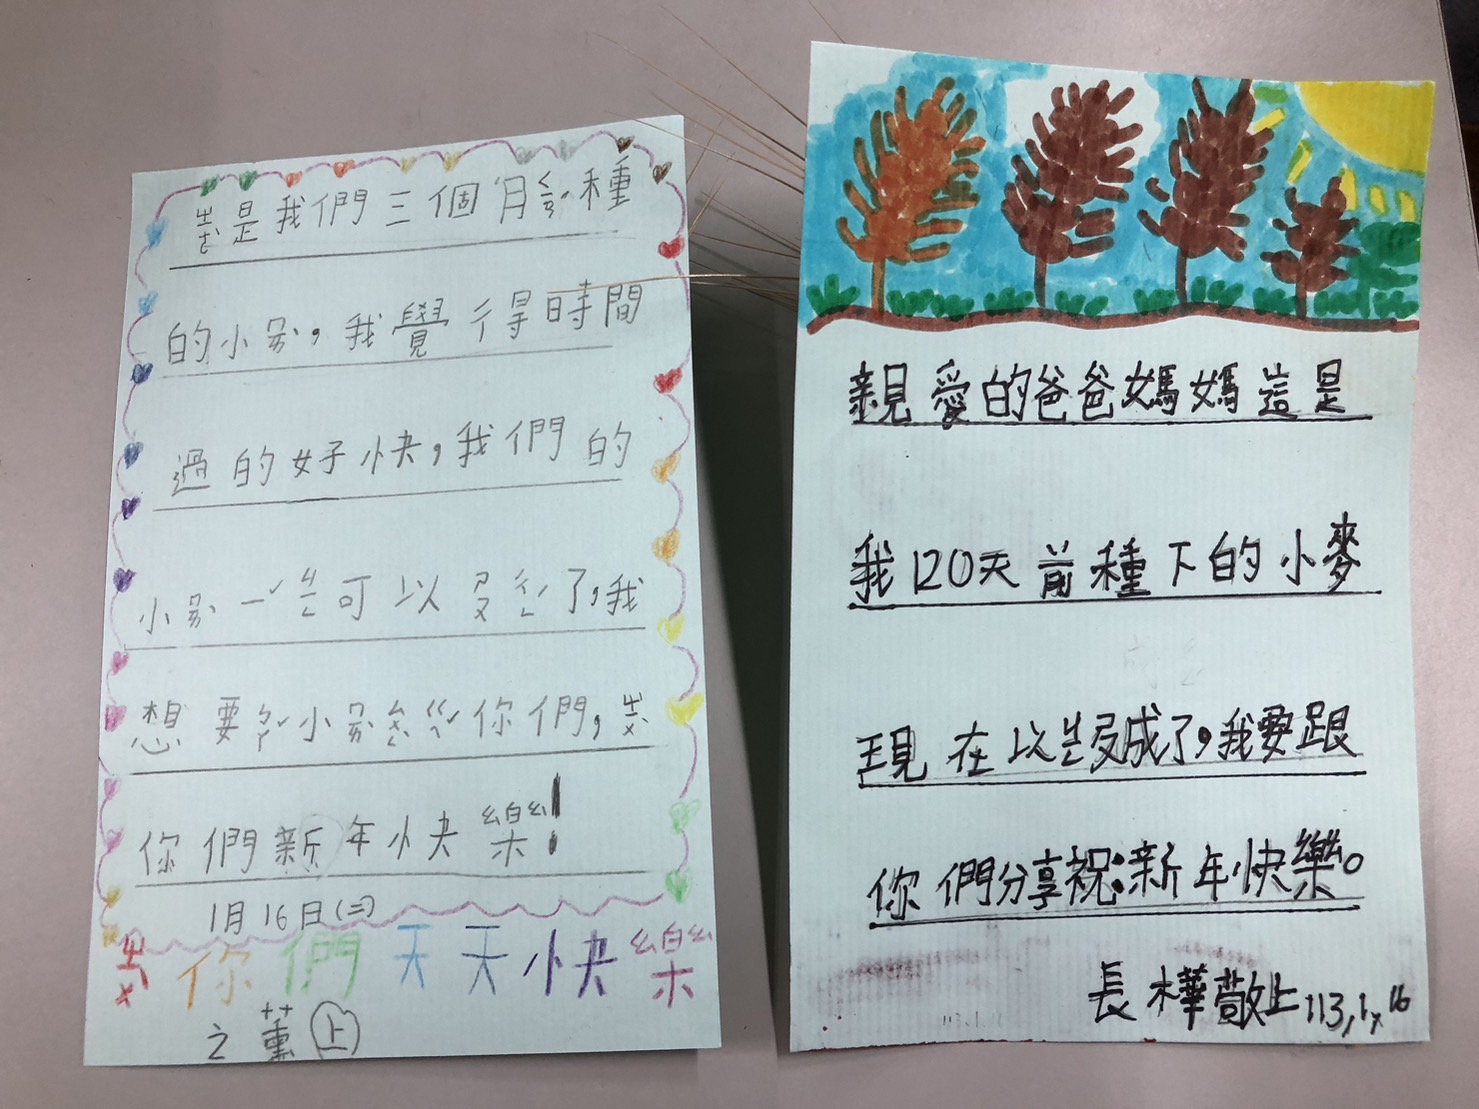 ㄓㄜˋ是我們三個月ㄑㄧㄢˊ種
的小ㄇㄞˋ,我覺得時間
過的好快,我們的
小ㄇㄞˋㄧˇㄐㄧㄥ可以ㄕㄡㄔㄥˊ了,我
想要ㄅㄚˇ小ㄇㄞˋㄙㄨㄥˋㄍㄟˇ你們,ㄓㄨˋ
你們新年快樂!
1月16日(二)
ㄓㄨˋ你們天天快樂
之薰上
親愛的爸爸媽媽這是
我120天前種下的小麥
現在以ㄐㄧㄥ收成了,我要跟
你們分享祝:新年快樂。
長樺敬上113,1,16